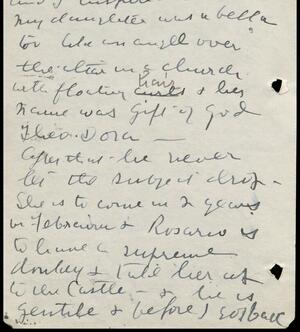 my daughter was a bella
too like an angel over
the altar in a church
with floating hair & her
name was Gift of God
Theo. Dora —
After that he never
let the subject drop -
She is to come in 2 years
in February & Rosario is
to have a supreme
donkey & take her up
to the Castle - & he is
gentile & before I got back